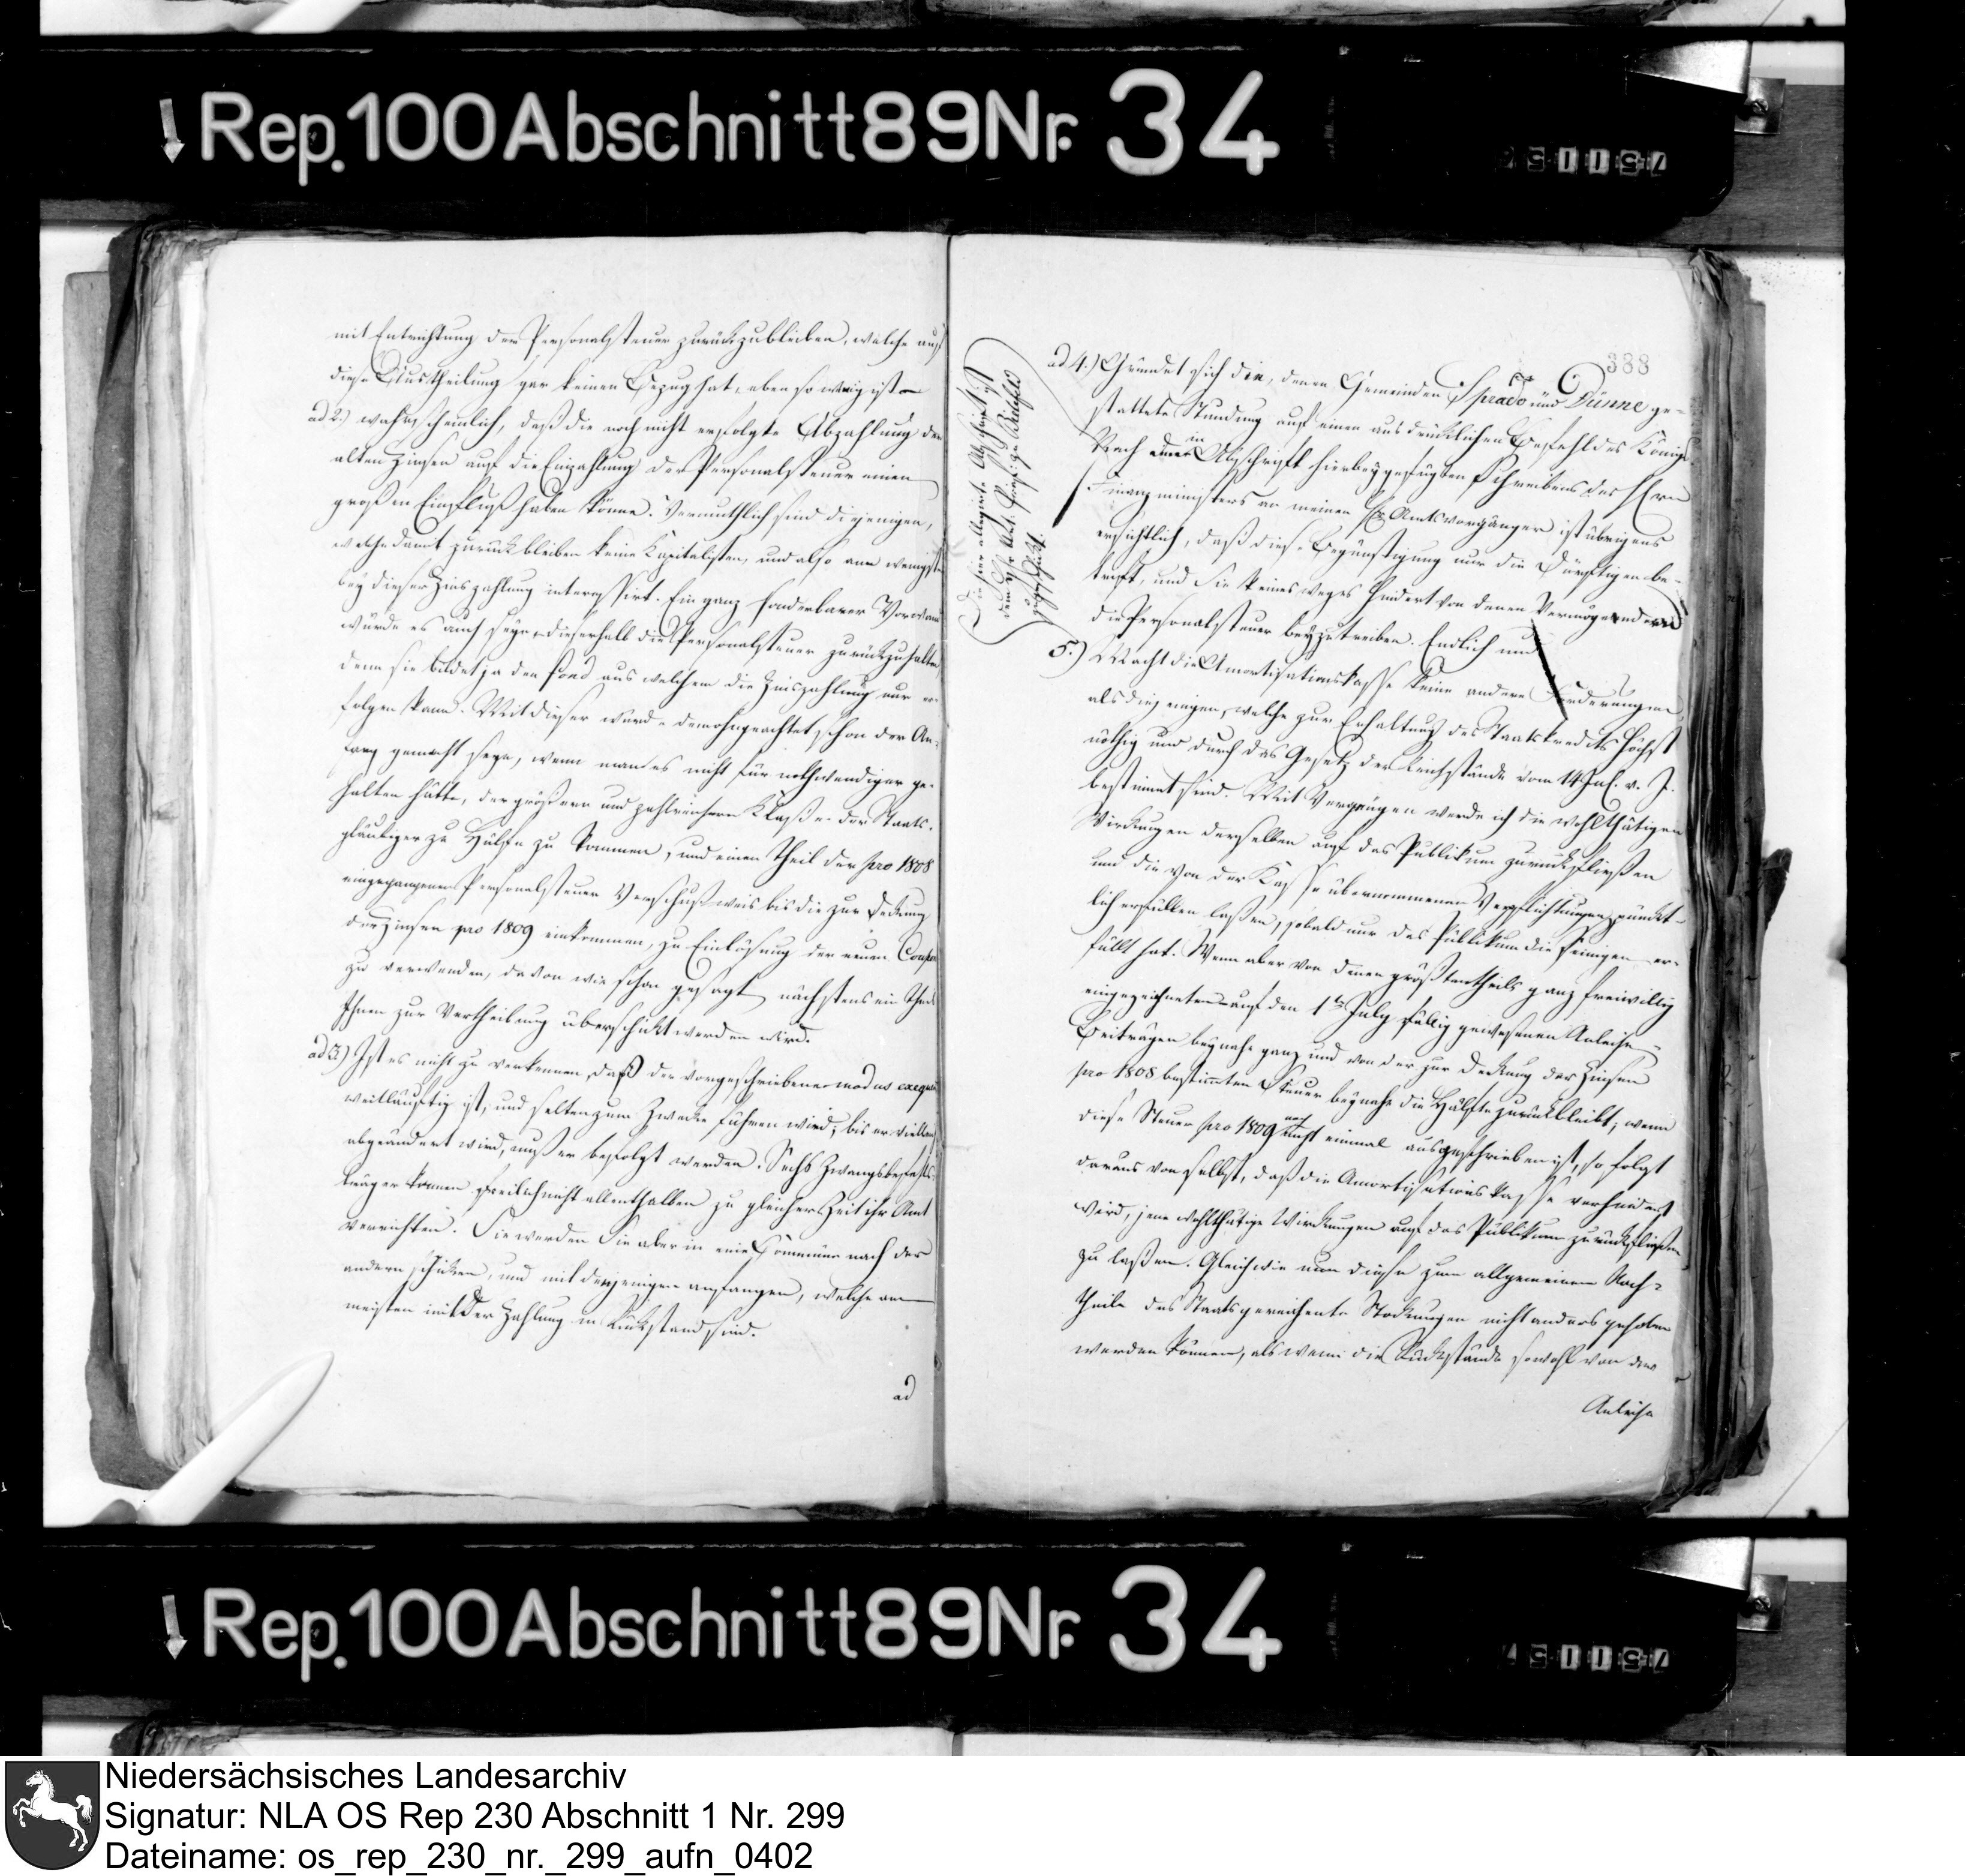 Rep. 100 Abschnitt 89 Nr. 34
mit Entrichtung der Personalsteuer zurückzubleiben, welche auf
diese Austheilung gar keinen Bezug hat, eben so wenig ist es
ad 2.) wahrscheinlich, daß die noch nicht erfolgte Abzahlung der
alten Zinsen auf die Einzahlung der Personalsteuer einen
großen Einfluß haben könne. Vermuthlich sind diejenigen,
welche damit zurückbleiben keine Kapitalisten, und also am wenigsten
bey dieser Zinszahlung interessirt. Ein ganz sonderbarer Vorwand
würde es auch seyn, dieserhalb die Personalsteuer zurückzuhalten,
denn sie bildet ja den fond aus welchem die Zinszahlung nur er-
folgen kann. Mit dieser würde demohngeachtet schon der An-
fang gemacht seyn, wenn man es nicht für nothwendiger ge-
halten hätte, der größern und zahlreichern Klaße der Staats-
gläubiger zu Hülfe zu kommen, und einen Theil der pro 1808
eingegangenen Personalsteuer Vorschußweis bis die zur Deckung
der Zinsen pro 1809 einkommen, zu Einlösung der neuen Coupons
zu verwenden, davon wie schon gesagt, nächstens ein Theil
Ihnen zur Vertheilung überschickt werden wird.
ad 3.) Ist es nicht zu verkennen, daß der vorgeschriebene modus exequendi
weitläuftig ist, und selten zum Zwecke führen wird; bis er
abgeändert wird, muß er befolgt werden. Sechs Zwangsbefehls-
träger können freilich nicht allenthalben zu gleicher Zeit ihr Amt
verrichten. Sie werden Sie aber in eine Commune nach der
andern schicken, und mit derjenigen anfangen, welche am
meisten mit der Zahlung im Rückstand sind.
ad
388
Die hier allegirte Abschrift ist
dem Präf. zu Bielefeld
zugeschickt.
ad 4.) Gründet sich die, denen Gemeinden Spradow und Dünne ge-
stattete Stundung auf einen ausdrücklichen Befehl des Königs.
Nach in Abschrift hierbeygefügten Schreibens des Herrn
Finanzministers an meinen Amtsvorgänger ist übrigens
ersichtlich, daß diese Begünstigung nur die Dürftigen be-
trift, und Sie keinesweges hindert von denen Vermögendern
die Personalsteuer beyzutreiben. Endlich und
5.) Macht die Amortisationskasse keine andere Forderungen,
als diejenigen, welche zur Erhaltung des Staatskredits höchst
nöthig und durch das Gesetz der Reichsstände vom 14 Jul. v. J.
bestimmt sind. Mit Vergnügen werde ich die wohlthätigen
Wirkungen derselben auf das Publikum zurückfließen
und die von der Kasse übernommenen Verpflichtungen pünkt-
lich erfüllen laßen, sobald nur das Publikum die seinigen er-
füllt hat. Wenn aber von denen größtentheils ganz freiwillig
eingezeichneten auf den 1ten July fällig gewesenen Anleihe-
Beiträgen beynahe ganz und von der zur Deckung der Zinsen
pro 1808 bestimmten Steuer beynahe die Hälfte zurückbleibt; wenn
diese Steuer pro 1809 noch nicht einmal ausgeschrieben ist, so folgt
daraus von selbst, daß die Amortisationskasse verhindert
wird, jene wohlthätige Wirkungen auf das Publikum zurückfließen
zu laßen. Gleichwie nun diese zum allgemeinen Nach-
theile des Staats gereichente Stockungen nicht anders gehoben
werden können, als wenn die Rückstände sowohl von der
Anleihe
Rep. 100 Abschnitt 89 Nr. 34
Niedersächsisches Landesarchiv
Signatur: NLA OS Rep 230 Abschnitt 1 Nr. 299
Dateiname: os_rep_230_nr._299_aufn_0402